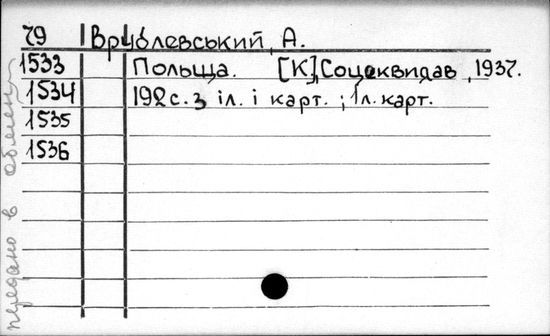 79 Врублевський, А.
1533 Польща. [К], Соцеквидав, 1937.
1534 192 с. з іл. і карт. ; 1 л. карт.
1535
1536
передано в обмен